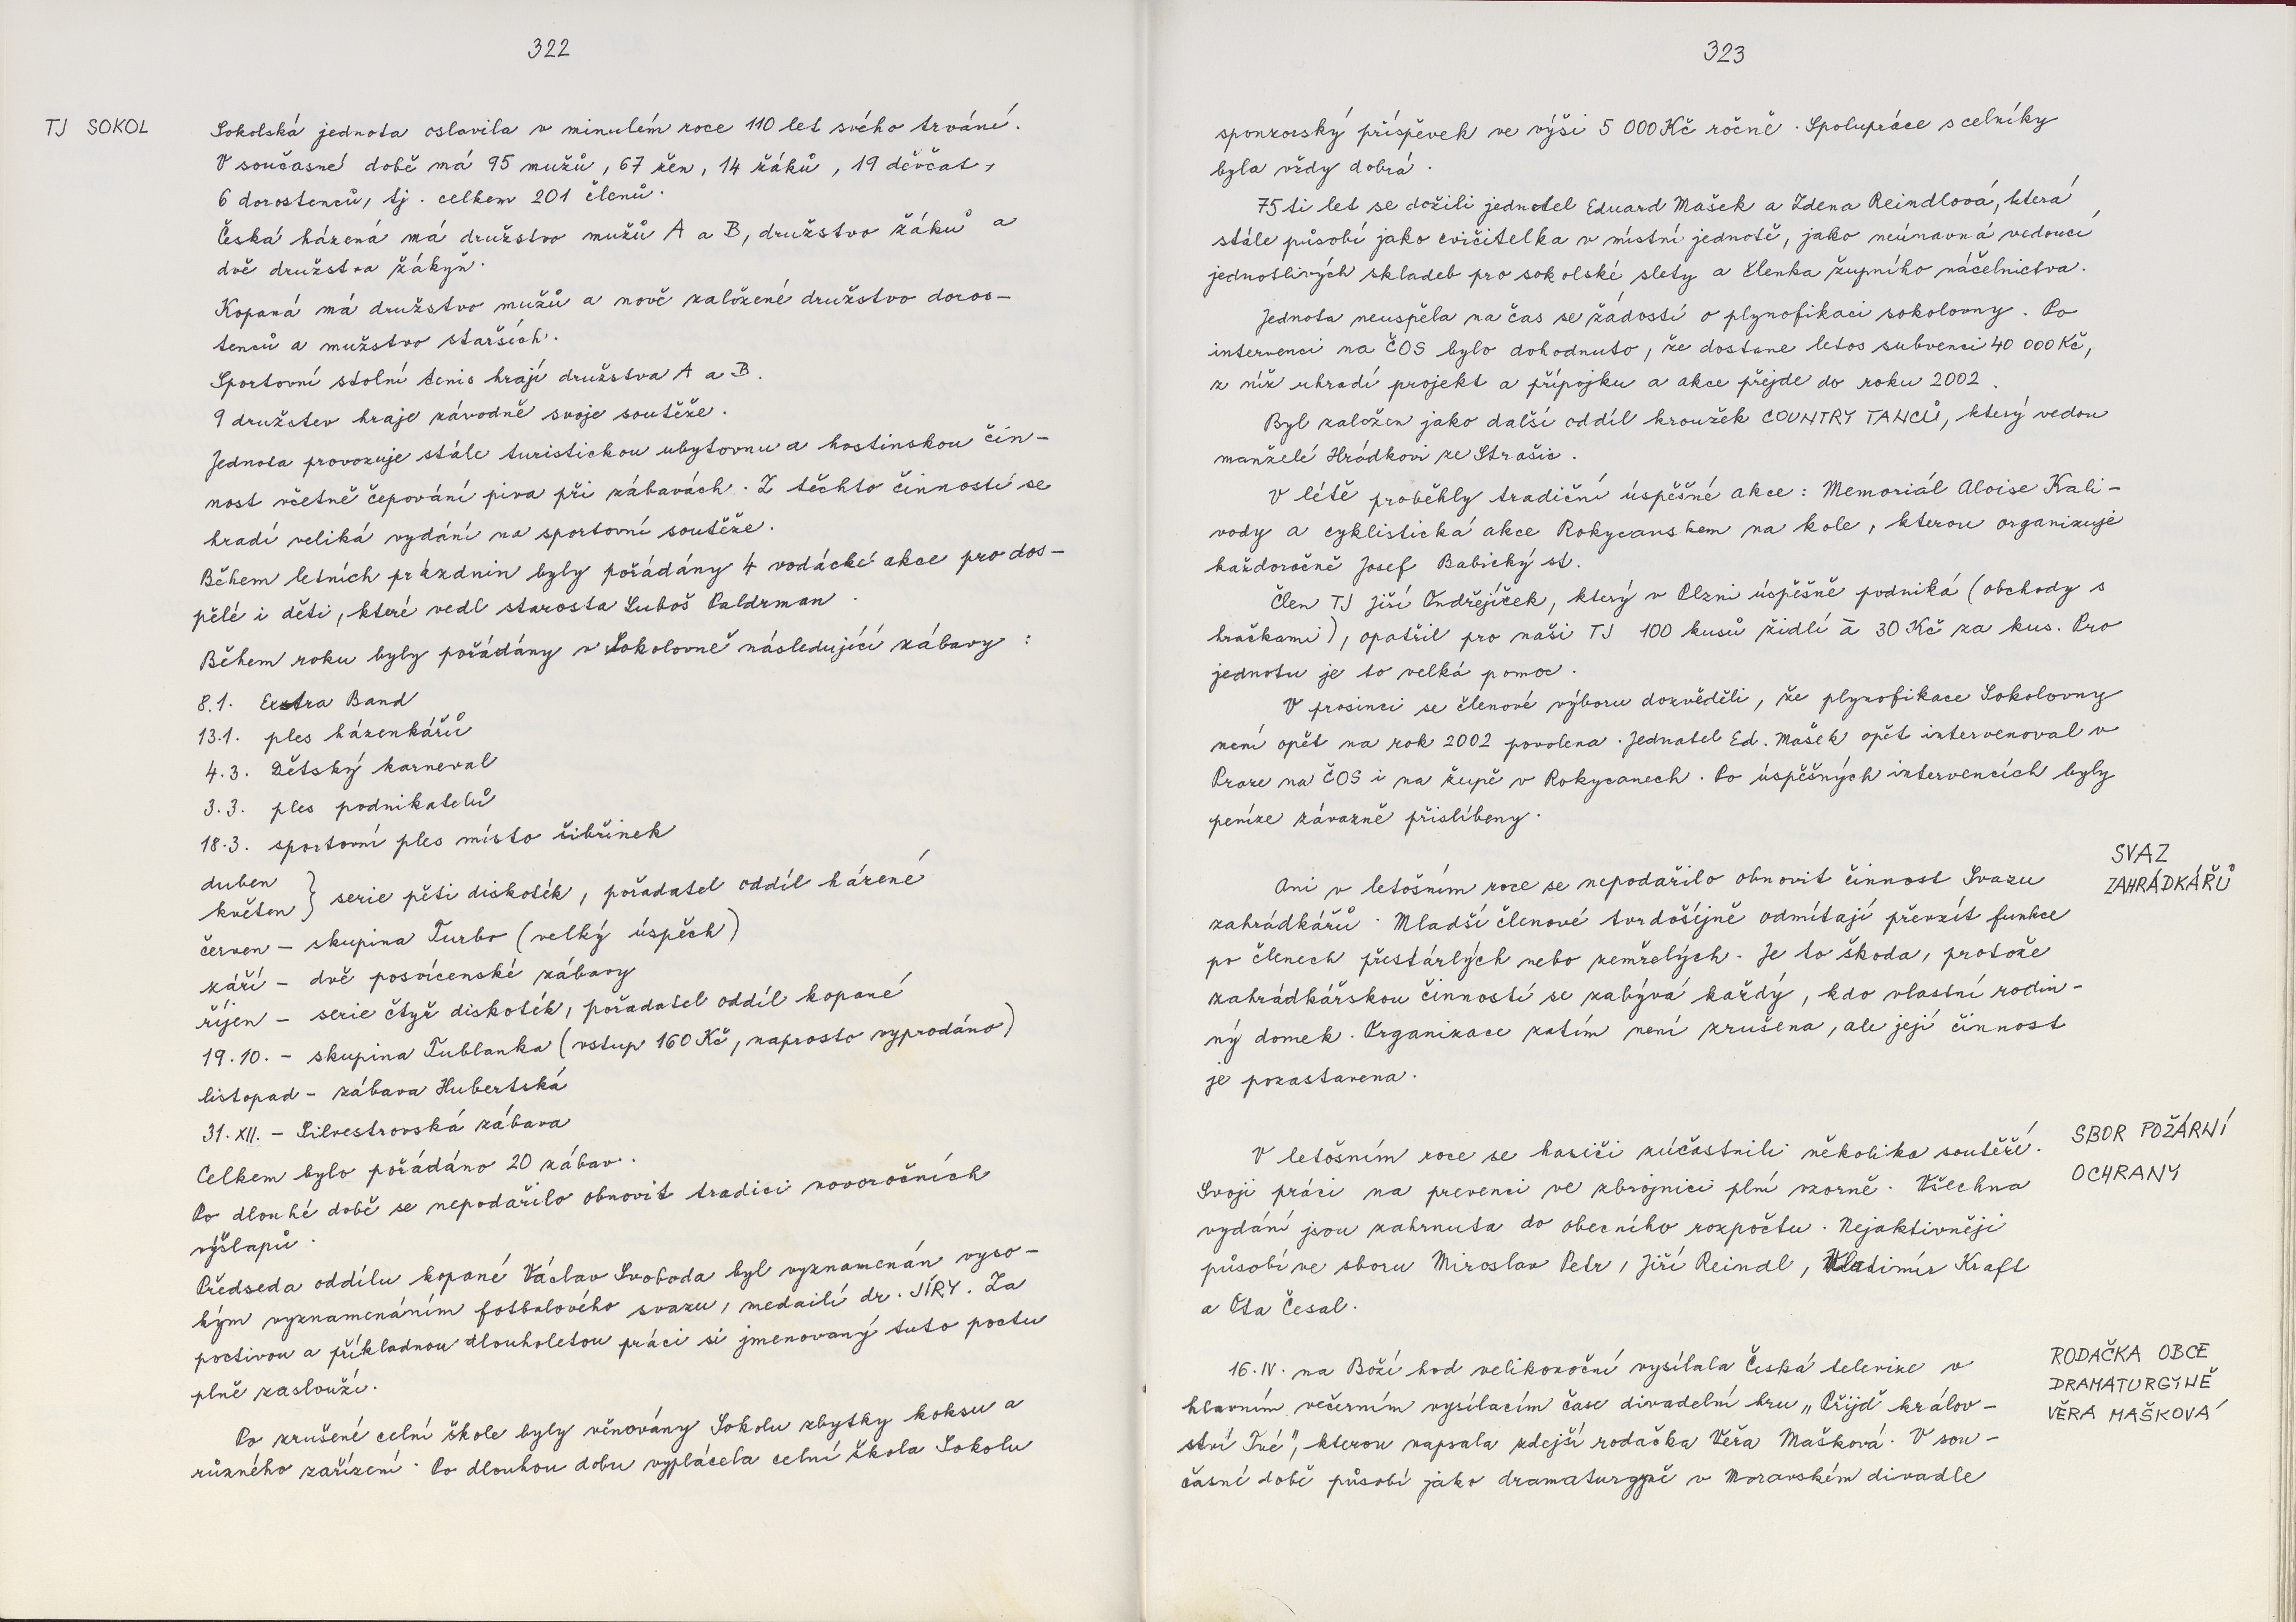 322
TJ SOKOL
Sokolská jednota oslavila v minulém roce 110 let svého trvání.
V současné době má 95 mužů, 67 žen, 14 žáků, 19 děvčat,
6 dorostenců, tj. celkem 201 členů.
Česká házená má družstvo mužů A a B, družstvo žáků a
dvě družstva žákyň.
Kopaná má družstvo mužů a nově založené družstvo doros-
tenců a mužstvo starších.
Sportovní stolní tenis hrají družstva A a B.
9 družstev hraje závodně svoje soutěže.
Jednota provozuje stále turistickou ubytovnu a hostinskou čin-
nost včetně čepování piva při zábavách. Z těchto činností se
hradí veliká vydání na sportovní soutěže.
Během letních prázdnin byly pořádány 4 vodácké akce pro dos-
pělé i děti, které vedl starosta Luboš Paldrman.
Během roku byly pořádány v Sokolovně následující zábavy:
8.1. Extra Band
13.1. ples házenkářů
4.3. Dětský karneval
3.3. ples podnikatelů
18.3. sportovní ples místo šibřinek
duben
květen } serie pěti diskoték, pořadatel oddíl házené
červen - skupina Turbo (velký úspěch)
září - dvě posvícenské zábavy
říjen - serie čtyř diskoték, pořadatel oddíl kopané
19.10. - skupina Tublanka (vstup 160 Kč, naprosto vyprodáno)
listopad - zábava Hubertská
31.XII. - Silvestrovská zábava
Celkem bylo pořádáno 20 zábav.
Po dlouhé době se nepodařilo obnovit tradici novoročních
výšlapů.
Předseda oddílu kopané Václav Svoboda byl vyznamenán vyso-
kým vyznamenáním fotbalového svazu, medailí dr. JÍRY. Za
poctivou a příkladnou dlouholetou práci si jmenovaný tuto poctu
plně zaslouží.
Po zrušené celní škole byly věnovány Sokolu zbytky koksu a
různého zařízení. Po dlouhou dobu vyplácela celní škola Sokolu
323
sponzorský příspěvek ve výši 5 000 Kč ročně. Spolupráce s celníky
byla vždy dobrá.
75 ti let se dožili jednatel Eduard Mašek a Zdena Reindlová, která
stále působí jako cvičitelka v místní jednotě, jako neúnavná vedoucí
jednotlivých skladeb pro sokolské slety a členka župního náčelnictva.
Jednota neuspěla na čas se žádostí o plynofikaci sokolovny. Po
intervenci na ČOS bylo dohodnuto, že dostane letos subvenci 40 000 Kč,
z níž uhradí projekt a přípojku a akce přejde do roku 2002.
Byl založen jako další oddíl kroužek COUNTRY TANCŮ, který vedou
manželé Hrádkovi ze Strašic.
V létě proběhly tradiční úspěšné akce: Memoriál Aloise Kali-
vody a cyklistická akce Rokycanskem na kole, kterou organizuje
každoročně Josef Babický st.
Člen TJ Jiří Ondřejíček, který v Plzni úspěšně podniká (obchody s
hračkami), opatřil pro naši TJ 100 kusů židlí à 30 Kč za kus. Pro
jednotu je to velká pomoc.
V prosinci se členové výboru dozvěděli, že plynofikace Sokolovny
není opět na rok 2002 povolena. Jednatel Ed. Mašek opět intervenoval v
Praze na ČOS i na župě v Rokycanech. Po úspěšných intervencích byly
peníze závazně přislíbeny.
SVAZ
ZAHRÁDKÁŘŮ
Ani v letošním roce se nepodařilo obnovit činnost Svazu
zahrádkářů. Mladší členové tvrdošíjně odmítají převzít funkce
po členech přestárlých nebo zemřelých. Je to škoda, protože
zahrádkářskou činností se zabývá každý, kdo vlastní rodin-
ný domek. Organizace zatím není zrušena, ale její činnost
je pozastavena.
SBOR POŽÁRNÍ
OCHRANY
V letošním roce se hasiči zúčastnili několika soutěží.
Svoji práci na prevenci ve zbrojnici plní vzorně. Všechna
vydání jsou zahrnuta do obecního rozpočtu. Nejaktivněji
působí ve sboru Miroslav Petr, Jiří Reindl, Vladimír Kraft
a Ota Česal.
RODAČKA OBCE
DRAMATURGYNĚ
VĚRA MAŠKOVÁ
16.IV. na Boží hod velikonoční vysílala Česká televize v
hlavním večerním vysílacím čase divadelní hru „Přijď králov-
ství Tvé", kterou napsala zdejší rodačka Věra Mašková. V sou-
časné době působí jako dramaturgyně v Moravském divadle